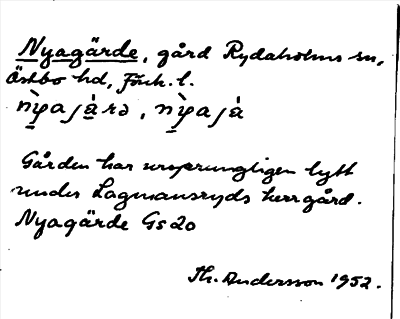 Nyagärde, gård Rydaholms sn,
Östbo hd, Jönk. l.
nỳajàrə, nỳajà
Gården har ursprungligen lytt
under Lagmansryds herrgård.
Nyagärde Gs 20
Th. Andersson 1952.